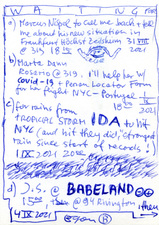 WAITING
a) Marcus Nispel to call me back + tell
me about his new situation in
Frankfurt Höchst Zeilsheim 31 VIII
@ 319, 18 15 2021
b) Marta Dann
Rosario @ 319, I'll help her w/
Covid-19 + Person Locator Form
for her flight NYC - Portugal 1
18 2021
c) for rains from
TROPICAL STORM IDA to hit
NYC (and hit they did,
rain since start of records!
1 IX 2021 20
d) J.S. @ BABELAND
15 @ 94 Rivington then
4 IX 2021